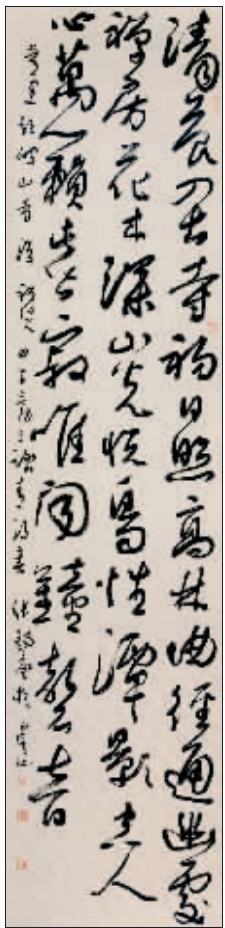 清晨入古寺初日照高林曲径通幽處
禅房花木深山光悦鳥性潭影空人
心萬籁此皆寂惟聞鐘磬音